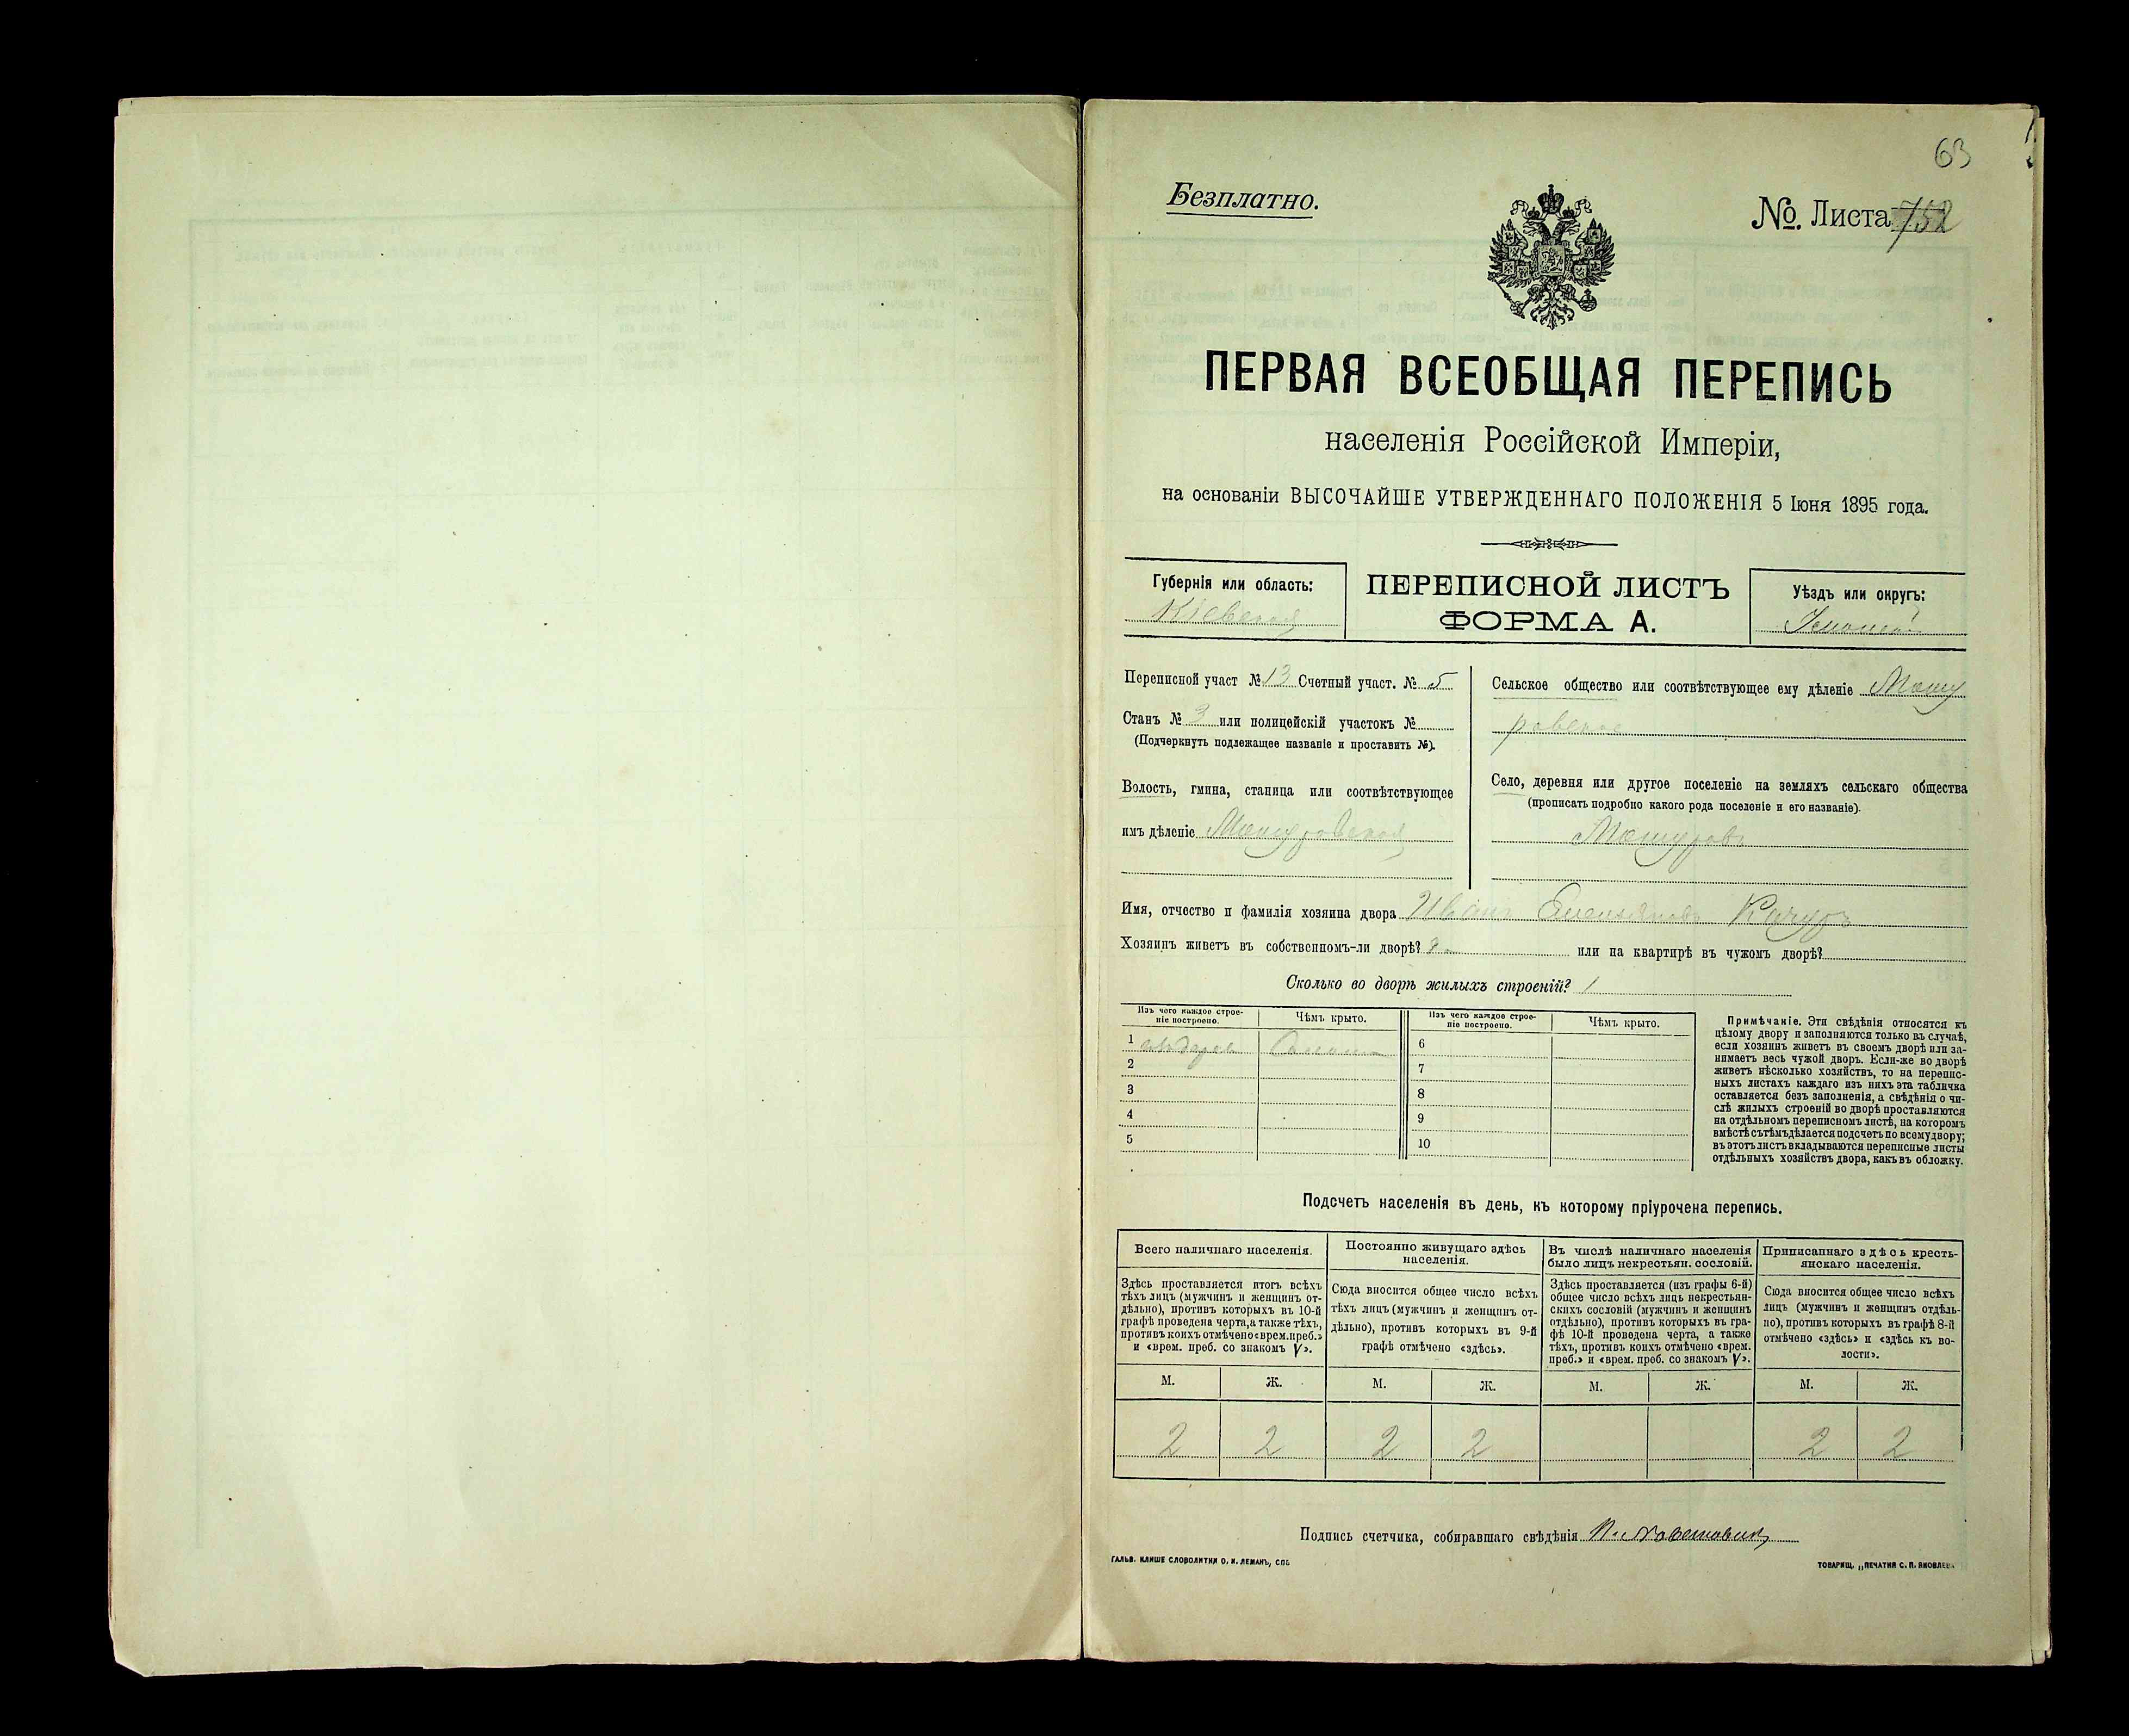 63
Безплатно.
№. Листа 752
ПЕРВАЯ ВСЕОБЩАЯ ПЕРЕПИСЬ
населенія Россійской Имперіи,
на основаніи ВЫСОЧАЙШЕ УТВЕРЖДЕННАГО ПОЛОЖЕНІЯ 5 Іюня 1895 года.
Губернія или область:
Кіевская
ПЕРЕПИСНОЙ ЛИСТЪ
ФОРМА А.
Уѣздъ или округъ:
Переписной участ № 13 Счетный участ. № 5
Станъ № 3 или полицейскій участокъ №
(Подчеркнуть подлежащее названіе и проставить №).
Волость, гмина, станица или соотвѣтствующее
имъ дѣленіе Машуровская
Сельское общество или соотвѣтствующее ему дѣленіе Машу
ровское
Село, деревня или другое поселеніе на земляхъ сельскаго общества
(прописать подробно какого рода поселеніе и его названіе).
Машуровъ
Имя, отчество и фамилія хозяина двора Иванъ Емельяновъ Качуръ
Хозяинъ живетъ въ собственномъ-ли дворѣ? или на квартирѣ въ чужомъ дворѣ?
Сколько во дворѣ жилыхъ строеній? 1
Изъ чего каждое строе-
ніе построено.
Чѣмъ крыто.
Изъ чего каждое строе-
ніе построено.
Чѣмъ крыто.
1
2
3
4
5
6
7
8
9
10
Примѣчаніе. Эти свѣдѣнія относятся къ
цѣлому двору и заполняются только въ случаѣ,
если хозяинъ живетъ въ своемъ дворѣ или за-
нимаетъ весь чужой дворъ. Если-же во дворѣ
живетъ нѣсколько хозяйствъ, то на перепис-
ныхъ листахъ каждаго изъ нихъ эта табличка
оставляется безъ заполненія, а свѣдѣнія о чи-
слѣ жилыхъ строеній во дворѣ проставляются
на отдѣльномъ переписномъ листѣ, на которомъ
вмѣстѣ съ тѣмъ дѣлается подсчетъ по всему двору;
въ этотъ листъ вкладываются переписные листы
отдѣльныхъ хозяйствъ двора, какъ въ обложку.
Подсчетъ населенія въ день, къ которому пріурочена перепись.
Всего наличнаго населенія.
Здѣсь проставляется итогъ всѣхъ
тѣхъ лицъ (мужчинъ и женщинъ от-
дѣльно), противъ которыхъ въ 10-й
графѣ проведена черта, а также тѣхъ,
противъ коихъ отмѣчено «врем. преб.»
и «врем. преб. со знакомъ V».
Постоянно живущаго здѣсь
населенія.
Сюда вносится общее число всѣхъ
тѣхъ лицъ (мужчинъ и женщинъ от-
дѣльно), противъ которыхъ въ 9-й
графѣ отмѣчено «здѣсь».
Въ числѣ наличнаго населенія
было лицъ некрестьян. сословій.
Здѣсь проставляется (изъ графы 6-й)
общее число всѣхъ лицъ некрестьян-
скихъ сословій (мужчинъ и женщинъ
отдѣльно), противъ которыхъ въ гра-
фѣ 10-й проведена черта, а также
тѣхъ, противъ коихъ отмѣчено «врем.
преб.» и «врем. преб. со знакомъ V».
Приписаннаго здѣсь кресть-
янскаго населенія.
Сюда вносится общее число всѣхъ
лицъ (мужчинъ и женщинъ отдѣль-
но), противъ которыхъ въ графѣ 8-й
отмѣчено «здѣсь» и «здѣсь къ во-
лости».
М. Ж. М. Ж. М. Ж. М. Ж.
2 2 2 2 2 2
Подпись счетчика, собиравшаго свѣдѣнія
ГАЛЬВ. КЛИШЕ СЛОВОЛИТНИ О. И. ЛЕМАНЪ, СПБ
ТОВАРИЩ. „ПЕЧАТНЯ С. П. ЯКОВЛЕВА